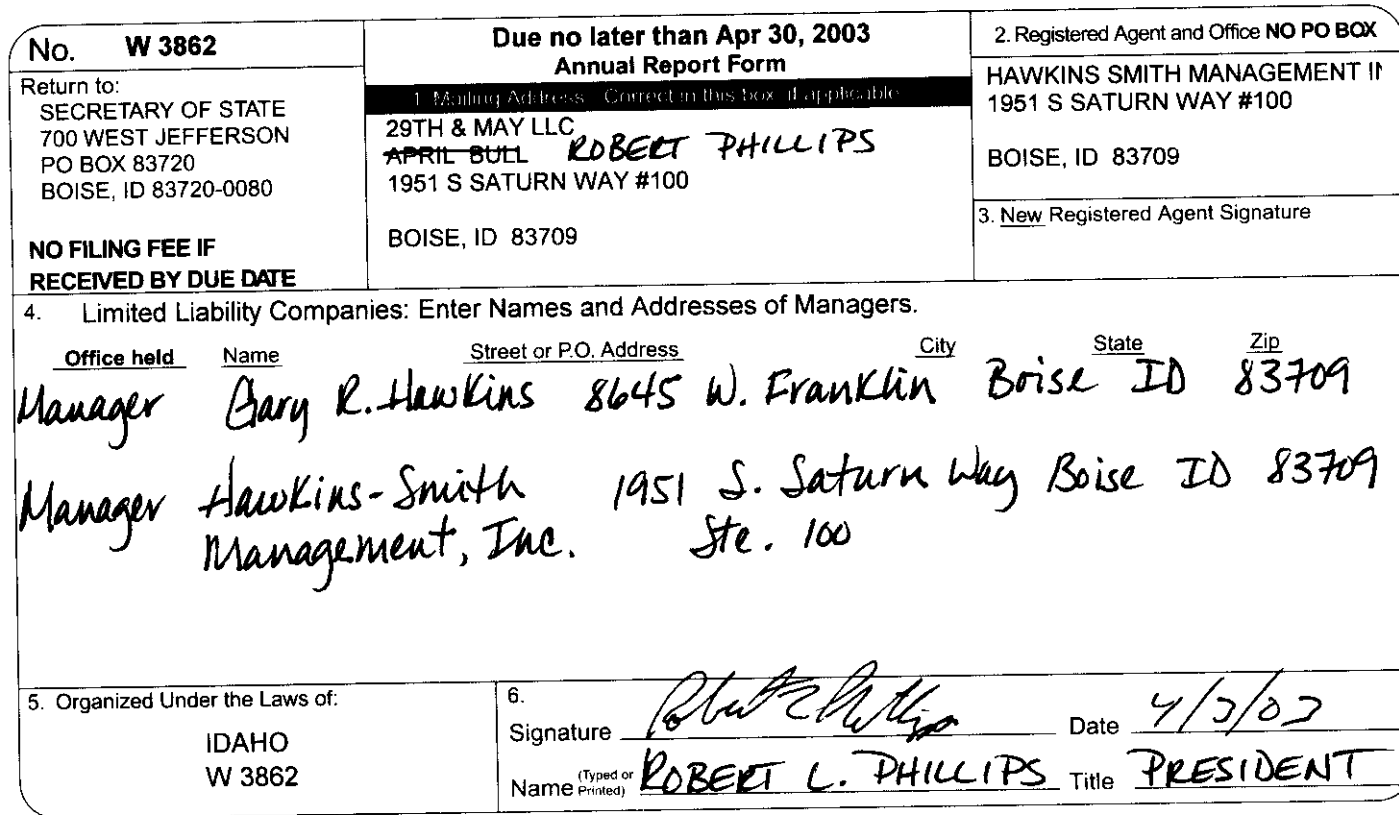 No. W 3862
Return to:
SECRETARY OF STATE
700 WEST JEFFERSON
PO BOX 83720
BOISE, ID 83720-0080
NO FILING FEE IF
RECEIVED BY DUE DATE
Due no later than Apr 30, 2003
Annual Report Form
1. Mailing Address: Correct in this box, if applicable
29TH & MAY LLC
APRIL BULL ROBERT PHILLIPS
1951 S SATURN WAY #100
BOISE, ID 83709
2. Registered Agent and Office NO PO BOX
HAWKINS SMITH MANAGEMENT
1951 S SATURN WAY #100
BOISE, ID 83709
3. New Registered Agent Signature
4. Limited Liability Companies: Enter Names and Addresses of Managers.
Office held Name Street or P.O. Address City State Zip
Manager Gary R. Hawkins 8645 W. Franklin Boise ID 83709
Manager Hawkins-Smith 1951 S. Saturn Way Boise ID 83709
Management, Inc. Ste. 100
5. Organized Under the Laws of:
IDAHO
W 3862
6.
Signature Robert L Phillips Date 4/3/03
Name (Typed or Printed) ROBERT L. PHILLIPS Title PRESIDENT